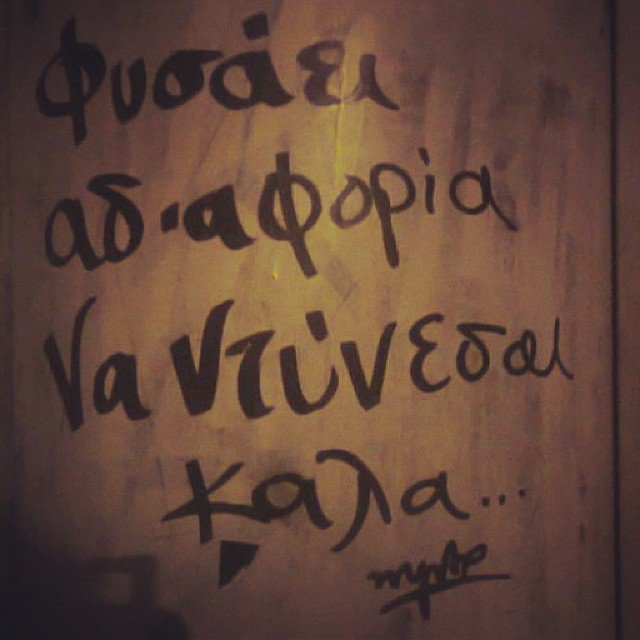 Φυσάει
αδιαφορία
Να Ντύνεσαι
Καλα...